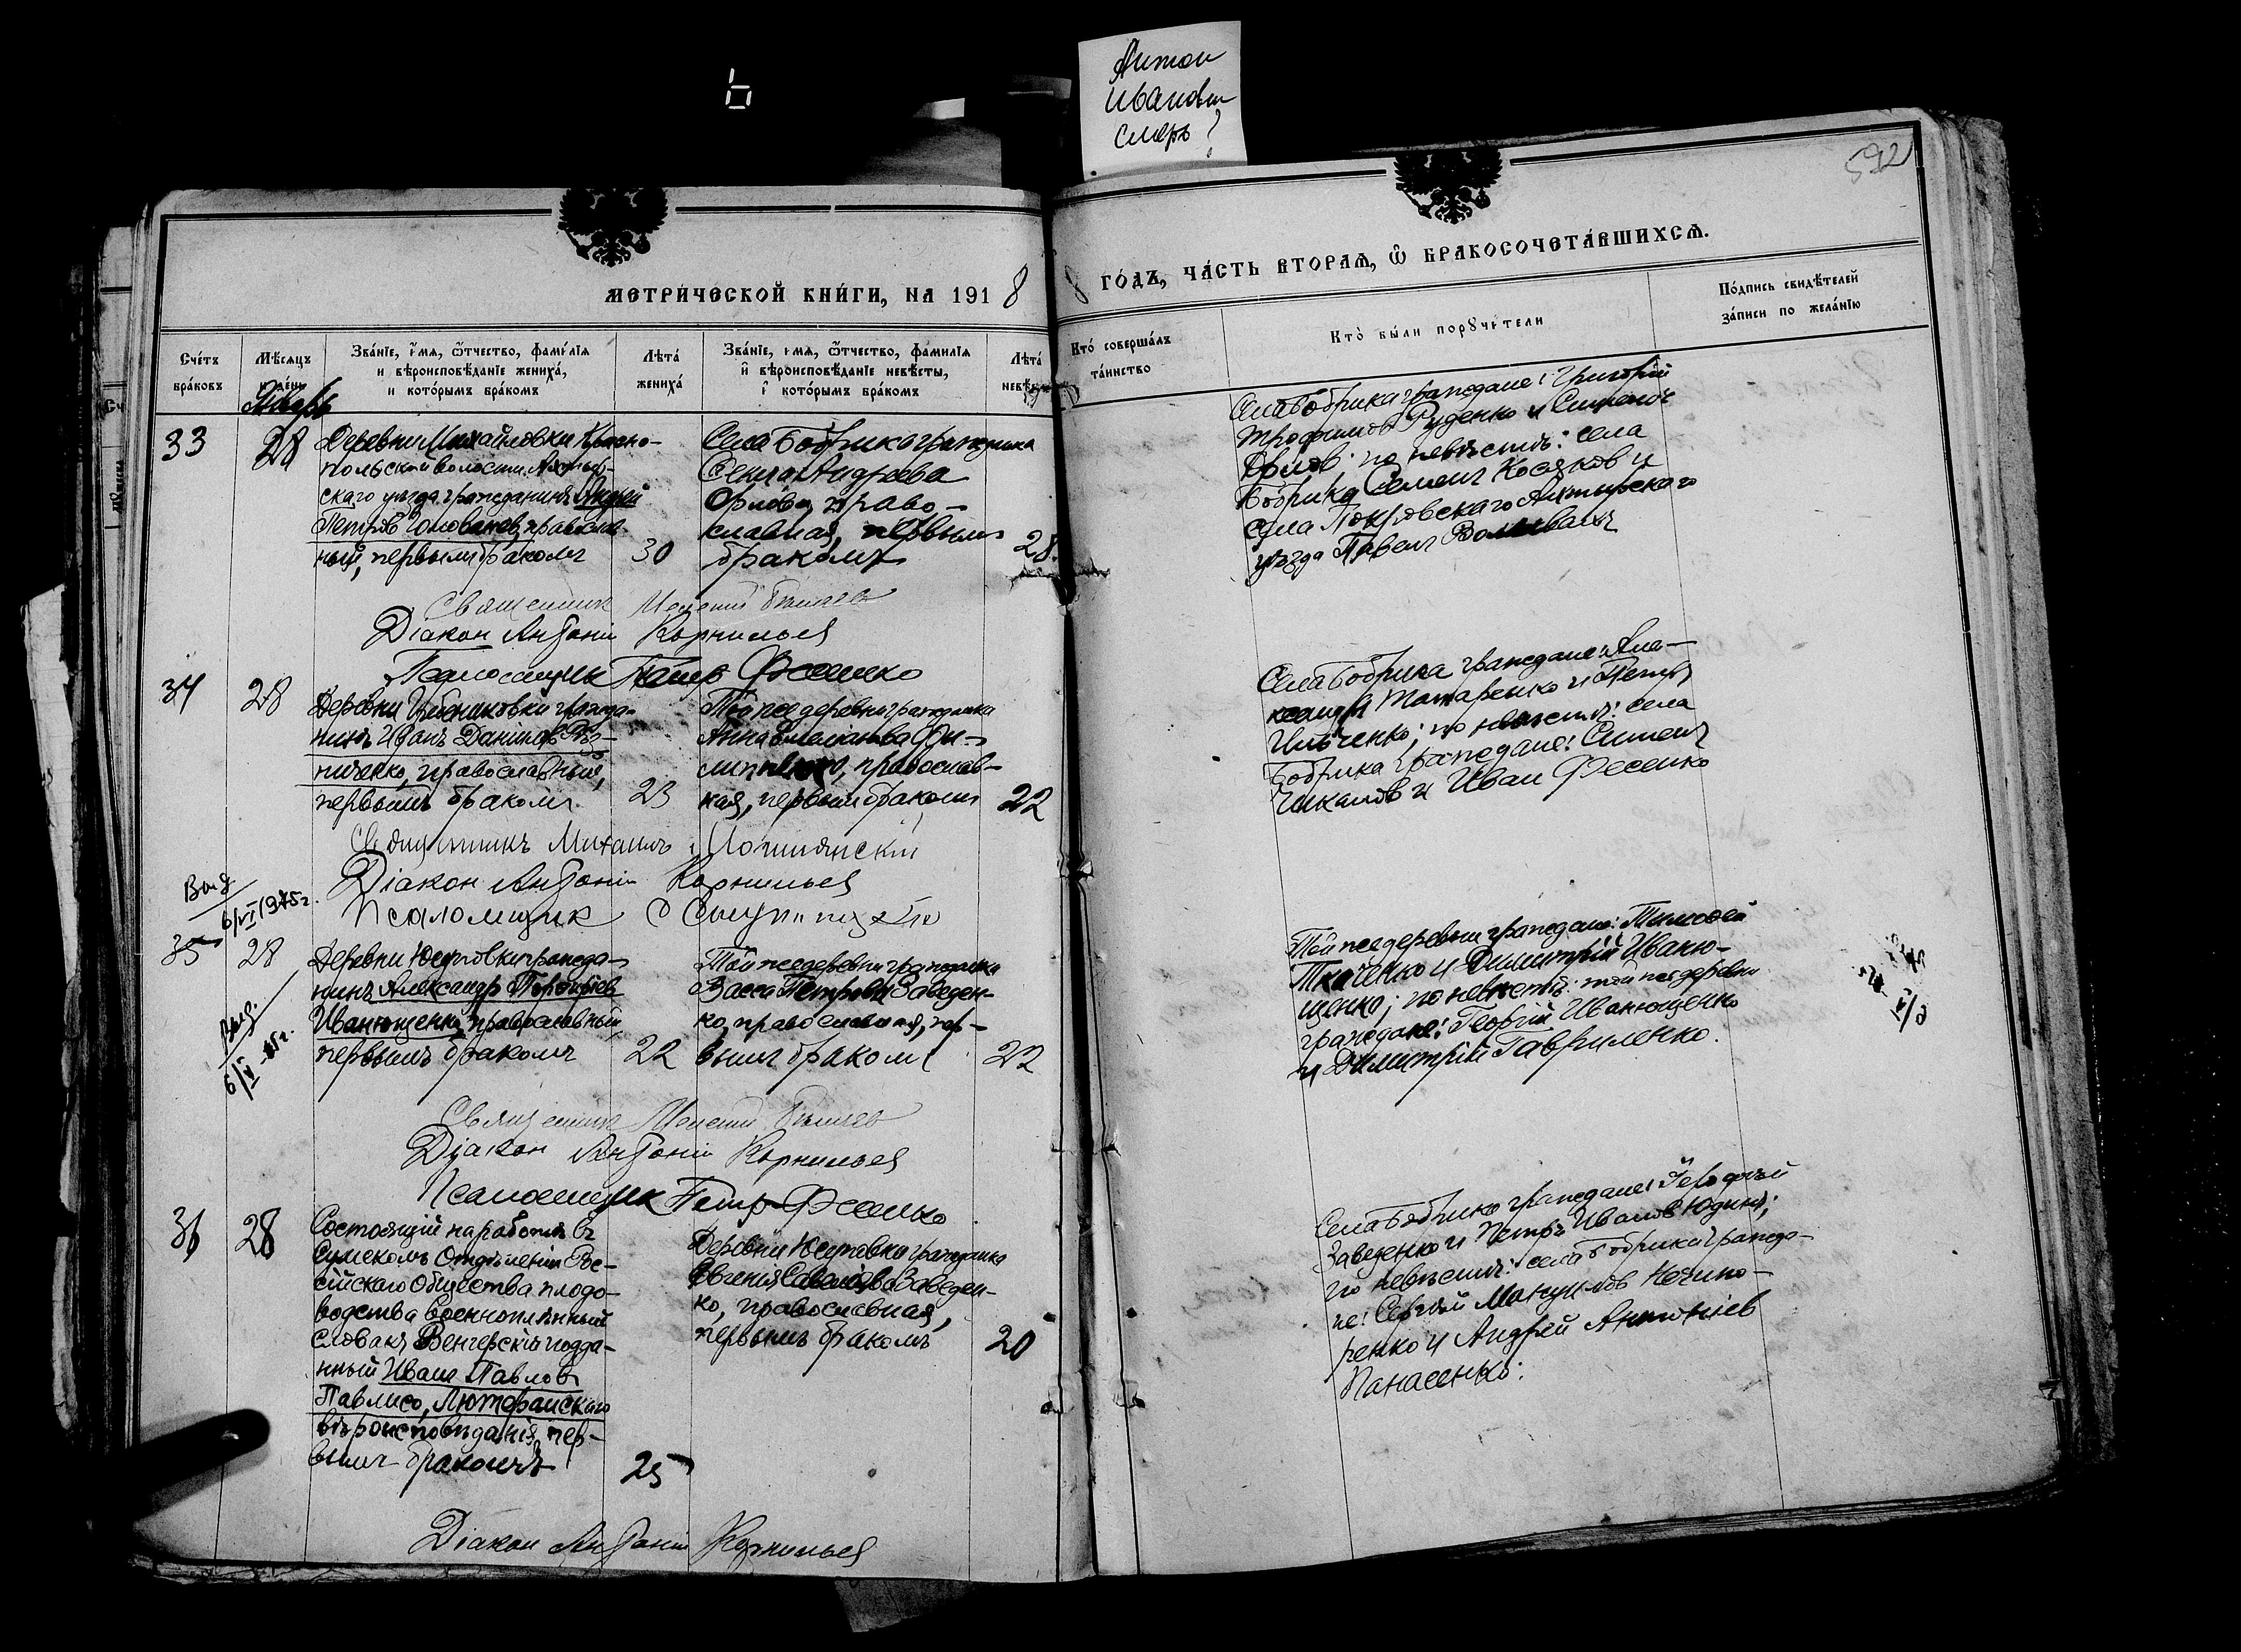 Антон
Иванови
смерь?
592
МЕТРИЧЕСКОЙ КНИГИ, НА 1918
8 ГОДЪ, ЧАСТЬ ВТОРАЯ, Ѡ БРАКОСОЧЕТАВШИХСЯ.
Счетъ браковъ
Мѣсяцъ и день
Званіе, имя, ѿчество, фамилія и вѣроисповѣданіе жениха, и которымъ бракомъ
Лѣта жениха
Званіе, имя, ѿчество, фамилія и вѣроисповѣданіе невѣсты, и которымъ бракомъ
Лѣта невѣсты
Кто совершалъ таинство
Кто были поручители
Подпись свидѣтелей записи по желанію
33
28
Деревни Михайловки Красно-
польской волости Ахтыр-
скаго уѣзда гражданинъ Андрей
Петровъ Голованев, православ-
ный, первымъ бракомъ
30
Села Бобрика гражданка
Андреева
Орлова, право-
славная, первымъ
бракомъ
28.
Села Бобрика граждане: Григорій
Трофимов Руденко и
Орлов; по невѣстѣ: села
Бобрика Семенъ Косяков и
села Покровскаго Ахтырскаго
уѣзда Павелъ
Священник
Діакон Антоній Корнильев
Псаломщик Петр Фесенко
34
28
Деревни граждани-
нинъ Иванъ Данилов Рѣз-
ниченко, православный,
первымъ бракомъ
23
Той же деревни гражданка
Анна Емельянова Фи-
липпенко, православ-
ная, первымъ бракомъ
22
Села Бобрика граждане: Але-
ксандръ Татаренко и Петръ
Ильченко; по невѣстѣ: села
Бобрика граждане: Симеонъ
Чикалов и Иван Фесенко
Священникъ Михаилъ
Діакон Антоній Корнильев
Псаломщик
Выд.
6/VI 1945г.
35
28
Деревни Юсуповки гражда-
нинъ Александр Порфиріев
Иванющенко, православный,
первымъ бракомъ
22
Той же деревни гражданка
Васса Петрова Заведен-
ко, православная, пер-
вымъ бракомъ
22
Выд.
6/V-45г.
Той же деревни граждане: Тимофей
Ткаченко и Димитрій Иваню-
щенко; по невѣстѣ: той же деревни
граждане: Георгій Иванющенко
и Димитрій Гавриленко.
Священник
Діакон Антоній Корнильев
Псаломщик Петр Фесенко
36
28
Состоящій на работѣ въ
Сумскомъ Отдѣленіи Рос-
сійскаго Общества плодо-
водства военноплѣнный
словакъ Венгерскій подда-
нный Иван Павлов
Павлисо, Лютеранскаго
вѣроисповѣданія, пер-
вымъ бракомъ
25
Деревни Юсуповки гражданка
Евгенія Савеліева Заведен-
ко, православная,
первымъ бракомъ
20
Села Бобрика граждане:
Заведенко и Петръ Иванов Юдинъ;
по невѣстѣ: села Бобрика гражда-
не: Сергѣй Мануилов Нечипо-
ренко и Андрей Антоніев
Панасенко.
Діакон Антоній Корнильев